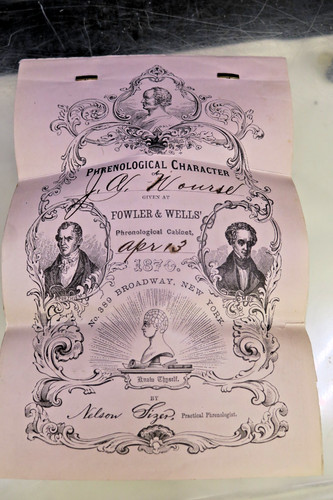 PHRENOLOGICAL CHARACTER
OF
J. W. Nourse
GIVEN AT
FOWLER & WELLS'
Phrenological Cabinet,
Apr 13
1870.
No. 389 BROADWAY, NEW YORK
Know Thyself.
BY
Nelson Sizer, Practical Phrenologist.